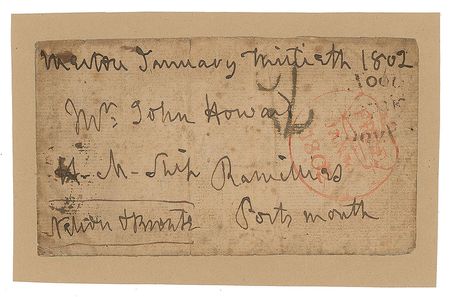 Merton January thirtieth 1802
Mr. John Howard
H-M-Ship Ramillies
Nelson & Bronte Portsmouth